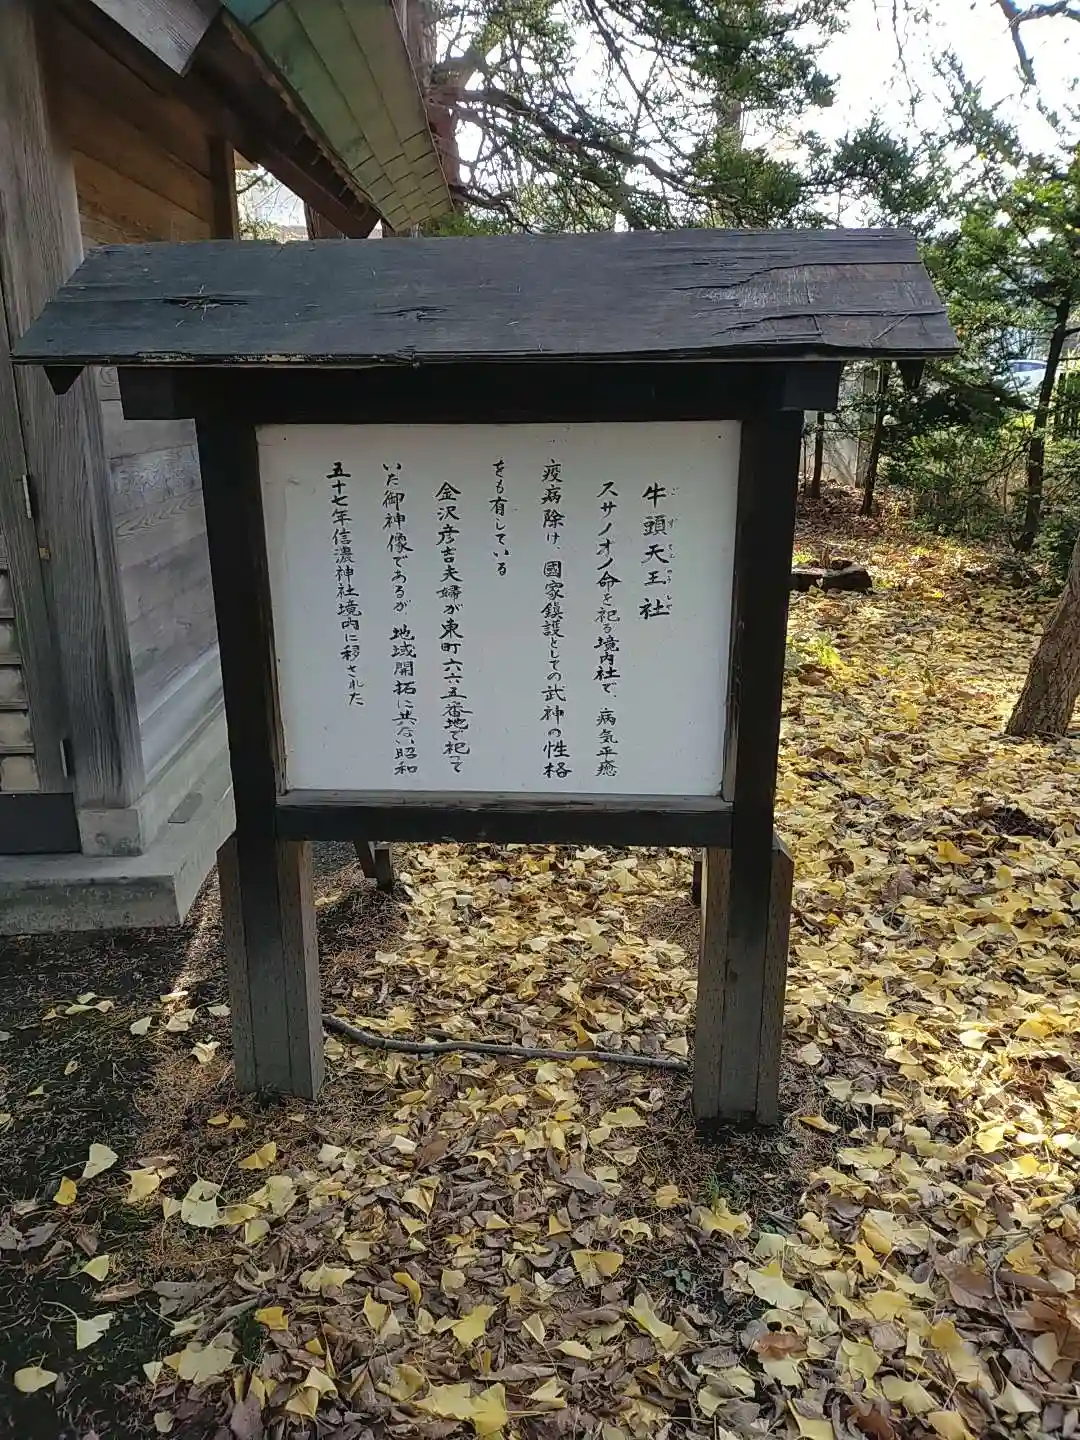 牛頭天王社
スサノオノ命を祀る境内社で、病気平癒
疫病除け、國家鎮護としての武神の性格
をも有している
金沢彦吉夫婦が東町六六五番地で祀って
いた御神像であるが、地域開拓に共ない昭和
五十七年信濃神社境内に移された